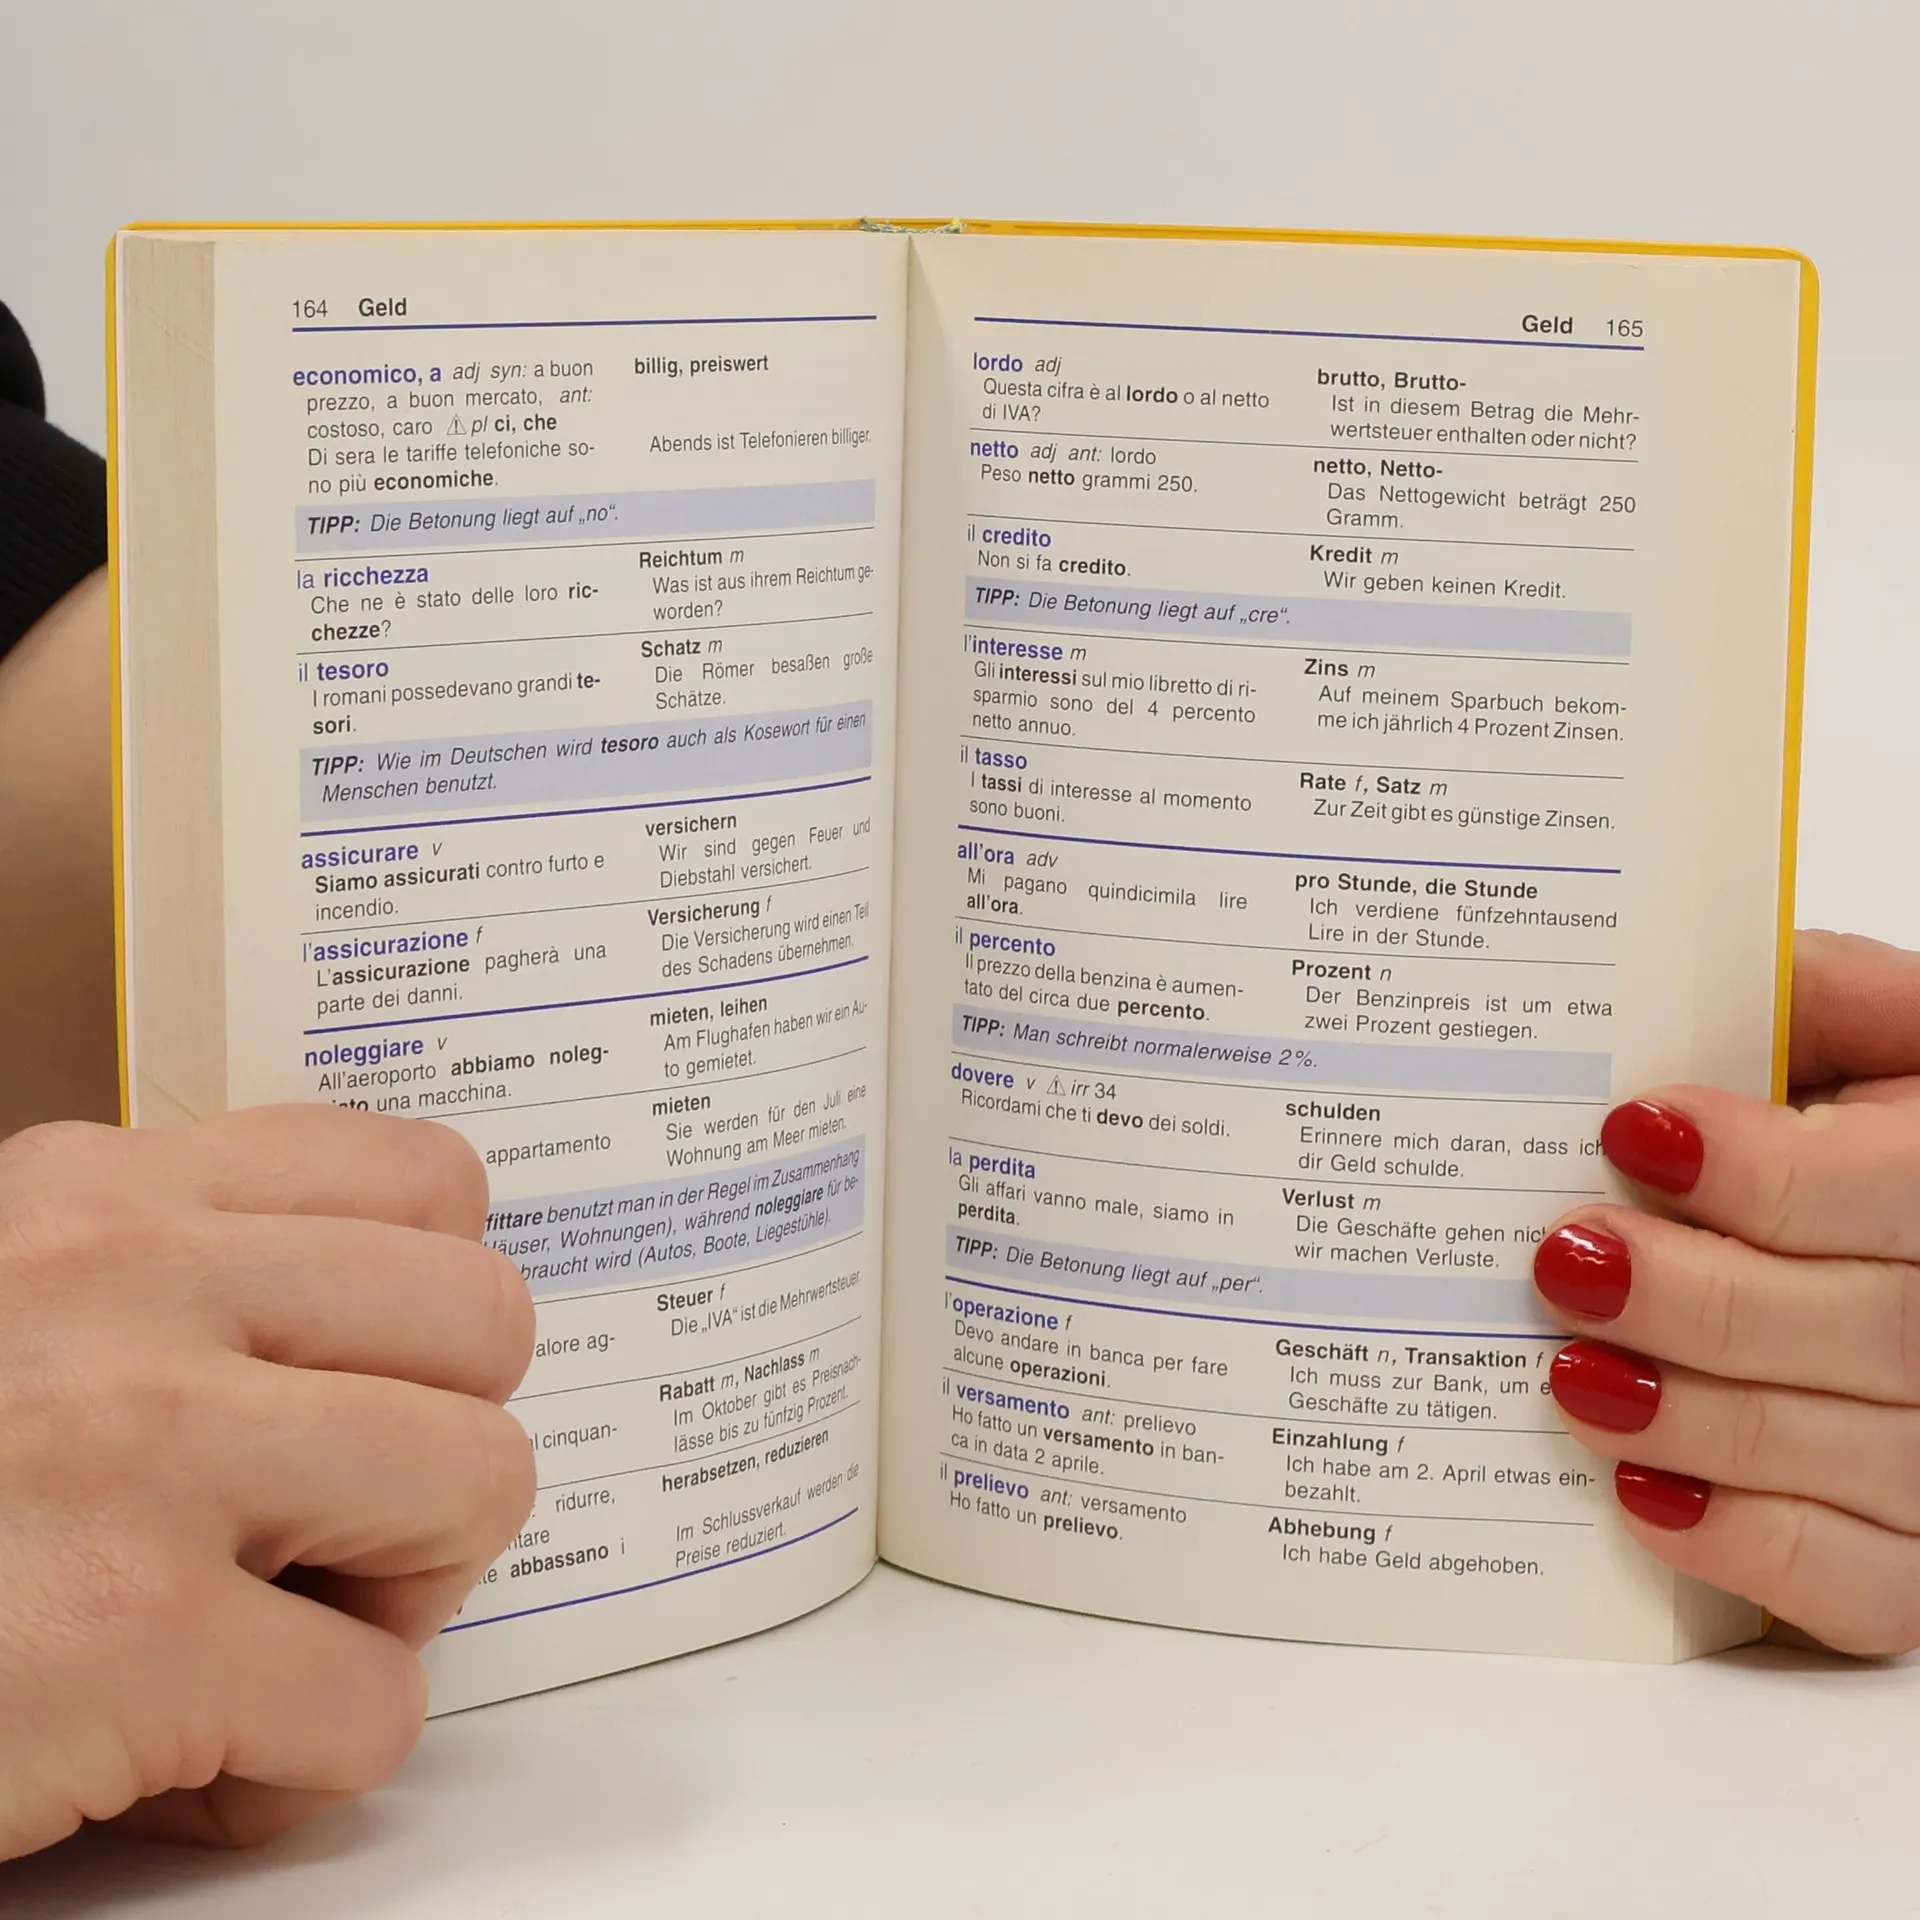 164 Geld
economico, a adj syn: a buon
prezzo, a buon mercato, ant:
costoso, caro ⚠ pl ci, che
Di sera le tariffe telefoniche so-
no più economiche.
billig, preiswert
Abends ist Telefonieren billiger.
TIPP: Die Betonung liegt auf „no“.
la ricchezza
Che ne è stato delle loro ric-
chezze?
Reichtum m
Was ist aus ihrem Reichtum ge-
worden?
il tesoro
I romani possedevano grandi te-
sori.
Schatz m
Die Römer besaßen große
Schätze.
TIPP: Wie im Deutschen wird tesoro auch als Kosewort für einen
Menschen benutzt.
assicurare v
Siamo assicurati contro furto e
incendio.
versichern
Wir sind gegen Feuer und
Diebstahl versichert.
l'assicurazione f
L'assicurazione pagherà una
parte dei danni.
Versicherung f
Die Versicherung wird einen Teil
des Schadens übernehmen.
noleggiare v
All'aeroporto abbiamo noleg-
una macchina.
mieten, leihen
Am Flughafen haben wir ein Au-
to gemietet.
appartamento
mieten
Sie werden für den Juli eine
Wohnung am Meer mieten.
fittare benutzt man in der Regel im Zusammenhang
äuser, Wohnungen), während noleggiare für be-
braucht wird (Autos, Boote, Liegestühle).
alore ag-
Steuer f
Die „IVA“ ist die Mehrwertsteuer.
l cinquan-
Rabatt m, Nachlass m
Im Oktober gibt es Preisnach-
lässe bis zu fünfzig Prozent.
ridurre,
ntare
abbassano i
herabsetzen, reduzieren
Im Schlussverkauf werden die
Preise reduziert.
Geld 165
lordo adj
Questa cifra è al lordo o al netto
di IVA?
brutto, Brutto-
Ist in diesem Betrag die Mehr-
wertsteuer enthalten oder nicht?
netto adj ant: lordo
Peso netto grammi 250.
netto, Netto-
Das Nettogewicht beträgt 250
Gramm.
il credito
Non si fa credito.
Kredit m
Wir geben keinen Kredit.
TIPP: Die Betonung liegt auf „cre“.
l'interesse m
Gli interessi sul mio libretto di ri-
sparmio sono del 4 percento
netto annuo.
Zins m
Auf meinem Sparbuch bekom-
me ich jährlich 4 Prozent Zinsen.
il tasso
I tassi di interesse al momento
sono buoni.
Rate f, Satz m
Zur Zeit gibt es günstige Zinsen.
all'ora adv
Mi pagano quindicimila lire
all'ora.
pro Stunde, die Stunde
Ich verdiene fünfzehntausend
Lire in der Stunde.
il percento
Il prezzo della benzina è aumen-
tato del circa due percento.
Prozent n
Der Benzinpreis ist um etwa
zwei Prozent gestiegen.
TIPP: Man schreibt normalerweise 2%.
dovere v ⚠ irr 34
Ricordami che ti devo dei soldi.
schulden
Erinnere mich daran, dass ich
dir Geld schulde.
la perdita
Gli affari vanno male, siamo in
perdita.
Verlust m
Die Geschäfte gehen
wir machen Verluste.
TIPP: Die Betonung liegt auf „per“.
l'operazione f
Devo andare in banca per fare
alcune operazioni.
Geschäft n, Transaktion f
Ich muss zur Bank, um
Geschäfte zu tätigen.
il versamento ant: prelievo
Ho fatto un versamento in ban-
ca in data 2 aprile.
Einzahlung f
Ich habe am 2. April etwas ein-
bezahlt.
il prelievo ant: versamento
Ho fatto un prelievo.
Abhebung f
Ich habe Geld abgehoben.